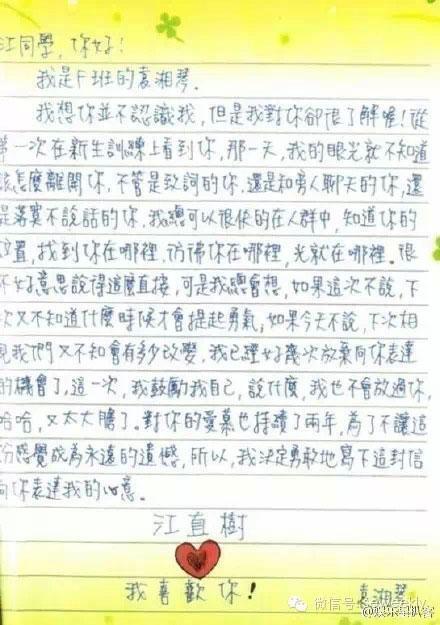 江同學，你好！
我是F班的袁湘琴。
我想你並不認識我，但是我對你卻很了解喔！從
第一次在新生訓練上看到你，那一天，我的眼光就不知道
該怎麼離開你，不管是致詞的你，還是和旁人聊天的你，還
是落寞不說話的你，我總可以很快的在人群中，知道你的
位置，找到你在哪裡，彷彿你在哪裡，光就在哪裡。很
不好意思說得這麼直接，可是我總會想，如果這次不說，下
次又不知道什麼時候才會提起勇氣，如果今天不說，下次相
見我們又不知會有多少改變，我已經好幾次放棄向你表達
的機會了，這一次，我鼓勵我自己，說什麼，我也不會放過你，
哈哈，又太大膽了。對你的愛慕也持續了兩年，為了不讓這
份感覺成為永遠的遺憾，所以，我決定勇敢地寫下這封信
向你表達我的心意。
江直樹
我喜歡你！
袁湘琴
微信号: